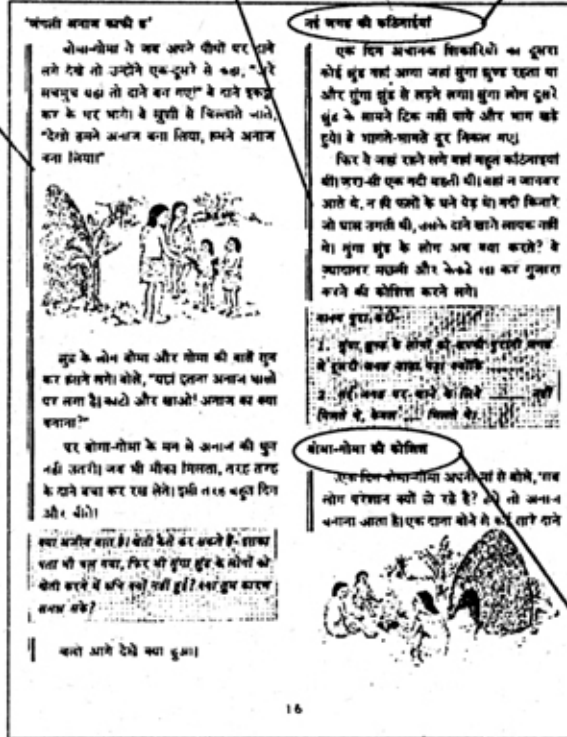 'जंगली अनाज काफी है'
बोमा-गोमा ने जब अपने पौधों पर दाने
लगे देखे तो उन्होंने एक-दूसरे से कहा, "अरे
सचमुच यहां तो दाने बन गए!" वे दाने इकट्ठे
कर के घर भागे। वे खुशी से चिल्लाते जाते,
"देखो हमने अनाज बना लिया, हमने अनाज
बना लिया।"
झुंड के लोग बोमा और गोमा की बातें सुन
कर हंसने लगे। बोले, "यहां इतना अनाज घासों
पर लगा है। काटो और खाओ! अनाज का क्या
बनाना?"
पर बोमा-गोमा के मन से अनाज की धुन
नहीं उतरी। जब भी मौका मिलता, तरह तरह
के दाने बचा कर रख लेते। इसी तरह बहुत दिन
और बीते।
क्या अजीब बात है। खेती कैसे कर सकते हैं- इसका
पता भी चल गया, फिर भी मुंगा झुंड के लोगों को
खेती करने में रुचि क्यों नहीं हुई? क्या तुम कारण
समझ सके?
चलो आगे देखें क्या हुआ।
नई जगह की कठिनाईयां
एक दिन अचानक शिकारियों का दूसरा
कोई झुंड वहां आया जहां मुंगा झुण्ड रहता था
और मुंगा झुंड से लड़ने लगा। मुंगा लोग दूसरे
झुंड के सामने टिक नहीं पाये और भाग खड़े
हुये। वे भागते-भागते दूर निकल गए।
फिर वे जहां रहने लगे वहां बहुत कठिनाइयां
थीं। जरा-सी एक नदी बहती थी। वहां न जानवर
आते थे, न ही फलों के घने पेड़ थे। नदी किनारे
जो घास उगती थी, उसके दाने खाने लायक नहीं
थे। मुंगा झुंड के लोग अब क्या करते? वे
ज़्यादातर मछली और केकड़े खा कर गुजारा
करने की कोशिश करने लगे।
वाक्य पूरा करो-
1. मुंगा झुण्ड के लोगों को अपनी पुरानी जगह
से दूसरी जगह जाना पड़ा क्योंकि
2. नई जगह पर खाने के लिये ______ नहीं
मिलते थे, केवल ____ मिलते थे।
बोमा-गोमा की कोशिश
एक दिन बोमा-गोमा अपनी मां से बोले, "सब
लोग परेशान क्यों हो रहे हैं? हमें तो अनाज
बनाना आता है। एक दाना बोने से कई सारे दाने
16